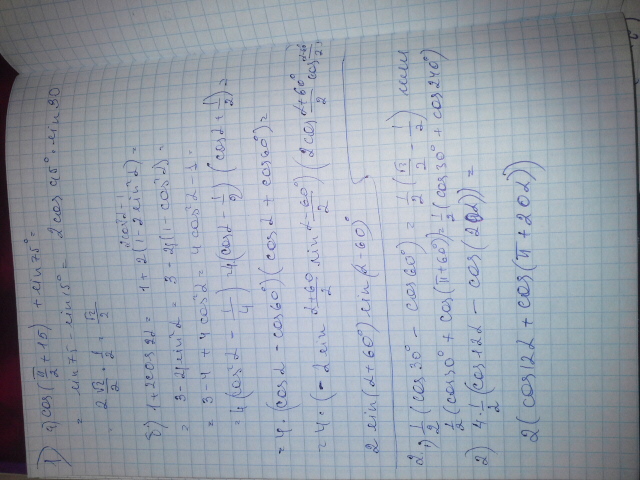 1) a) cos(π/2 + 15) + sin 75° =
= sin 75 - sin 15° = 2 cos 45° · sin 30
2 √2/2 · 1/2 = √2/2
б) 1 + 2cos 2α = 1 + 2(1 - 2 sin²α) =
= 3 - 4 sin²α = 3 - 4(1 - cos²α) =
= 3 - 4 + 4 cos²α = 4 cos²α - 1 =
= 4(cos²α - 1/4) = 4(cos α - 1/2)(cos α + 1/2) =
= 4 · (cos α - cos 60°)(cos α + cos 60°) =
= 4 · (-2 sin α+60/2 sin α-60°/2)(2 cos α+60°/2 cos
2 sin(α + 60°) sin(α - 60°)
2. 1) 1/2 (cos 30° - cos 60°) = 1/2 (√3/2 - 1/2) или
1/2 (cos 30° + cos(π + 60°)) = 1/2 (cos 30° + cos 240°)
2) 4 · 1/2 (cos 12α - cos(20α)) =
2 (cos 12α + cos(π + 20α))